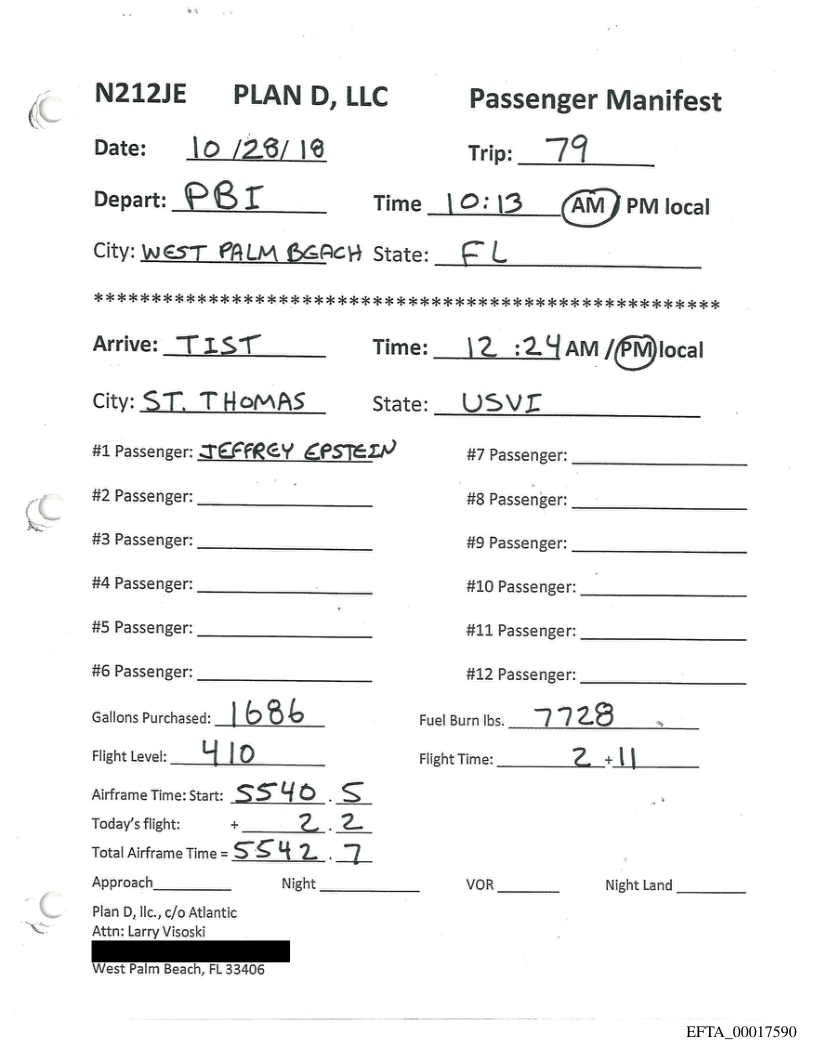 N212JE PLAN D, LLC Passenger Manifest
Date: 10/28/18 Trip: 79
Depart: PBI Time 10:13 AM PM local
City: WEST PALM BEACH State: FL
*****************************************************
Arrive: TIST Time: 12:24 AM / PM local
City: ST. THOMAS State: USVI
#1 Passenger: JEFFREY EPSTEIN #7 Passenger:
#2 Passenger: #8 Passenger:
#3 Passenger: #9 Passenger:
#4 Passenger: #10 Passenger:
#5 Passenger: #11 Passenger:
#6 Passenger: #12 Passenger:
Gallons Purchased: 1686 Fuel Burn lbs. 7728
Flight Level: 410 Flight Time: 2 + 11
Airframe Time: Start: 5540.5
Today's flight: + 2.2
Total Airframe Time = 5542.7
Approach Night VOR Night Land
Plan D, llc., c/o Atlantic
Attn: Larry Visoski
West Palm Beach, FL 33406
EFTA_00017590